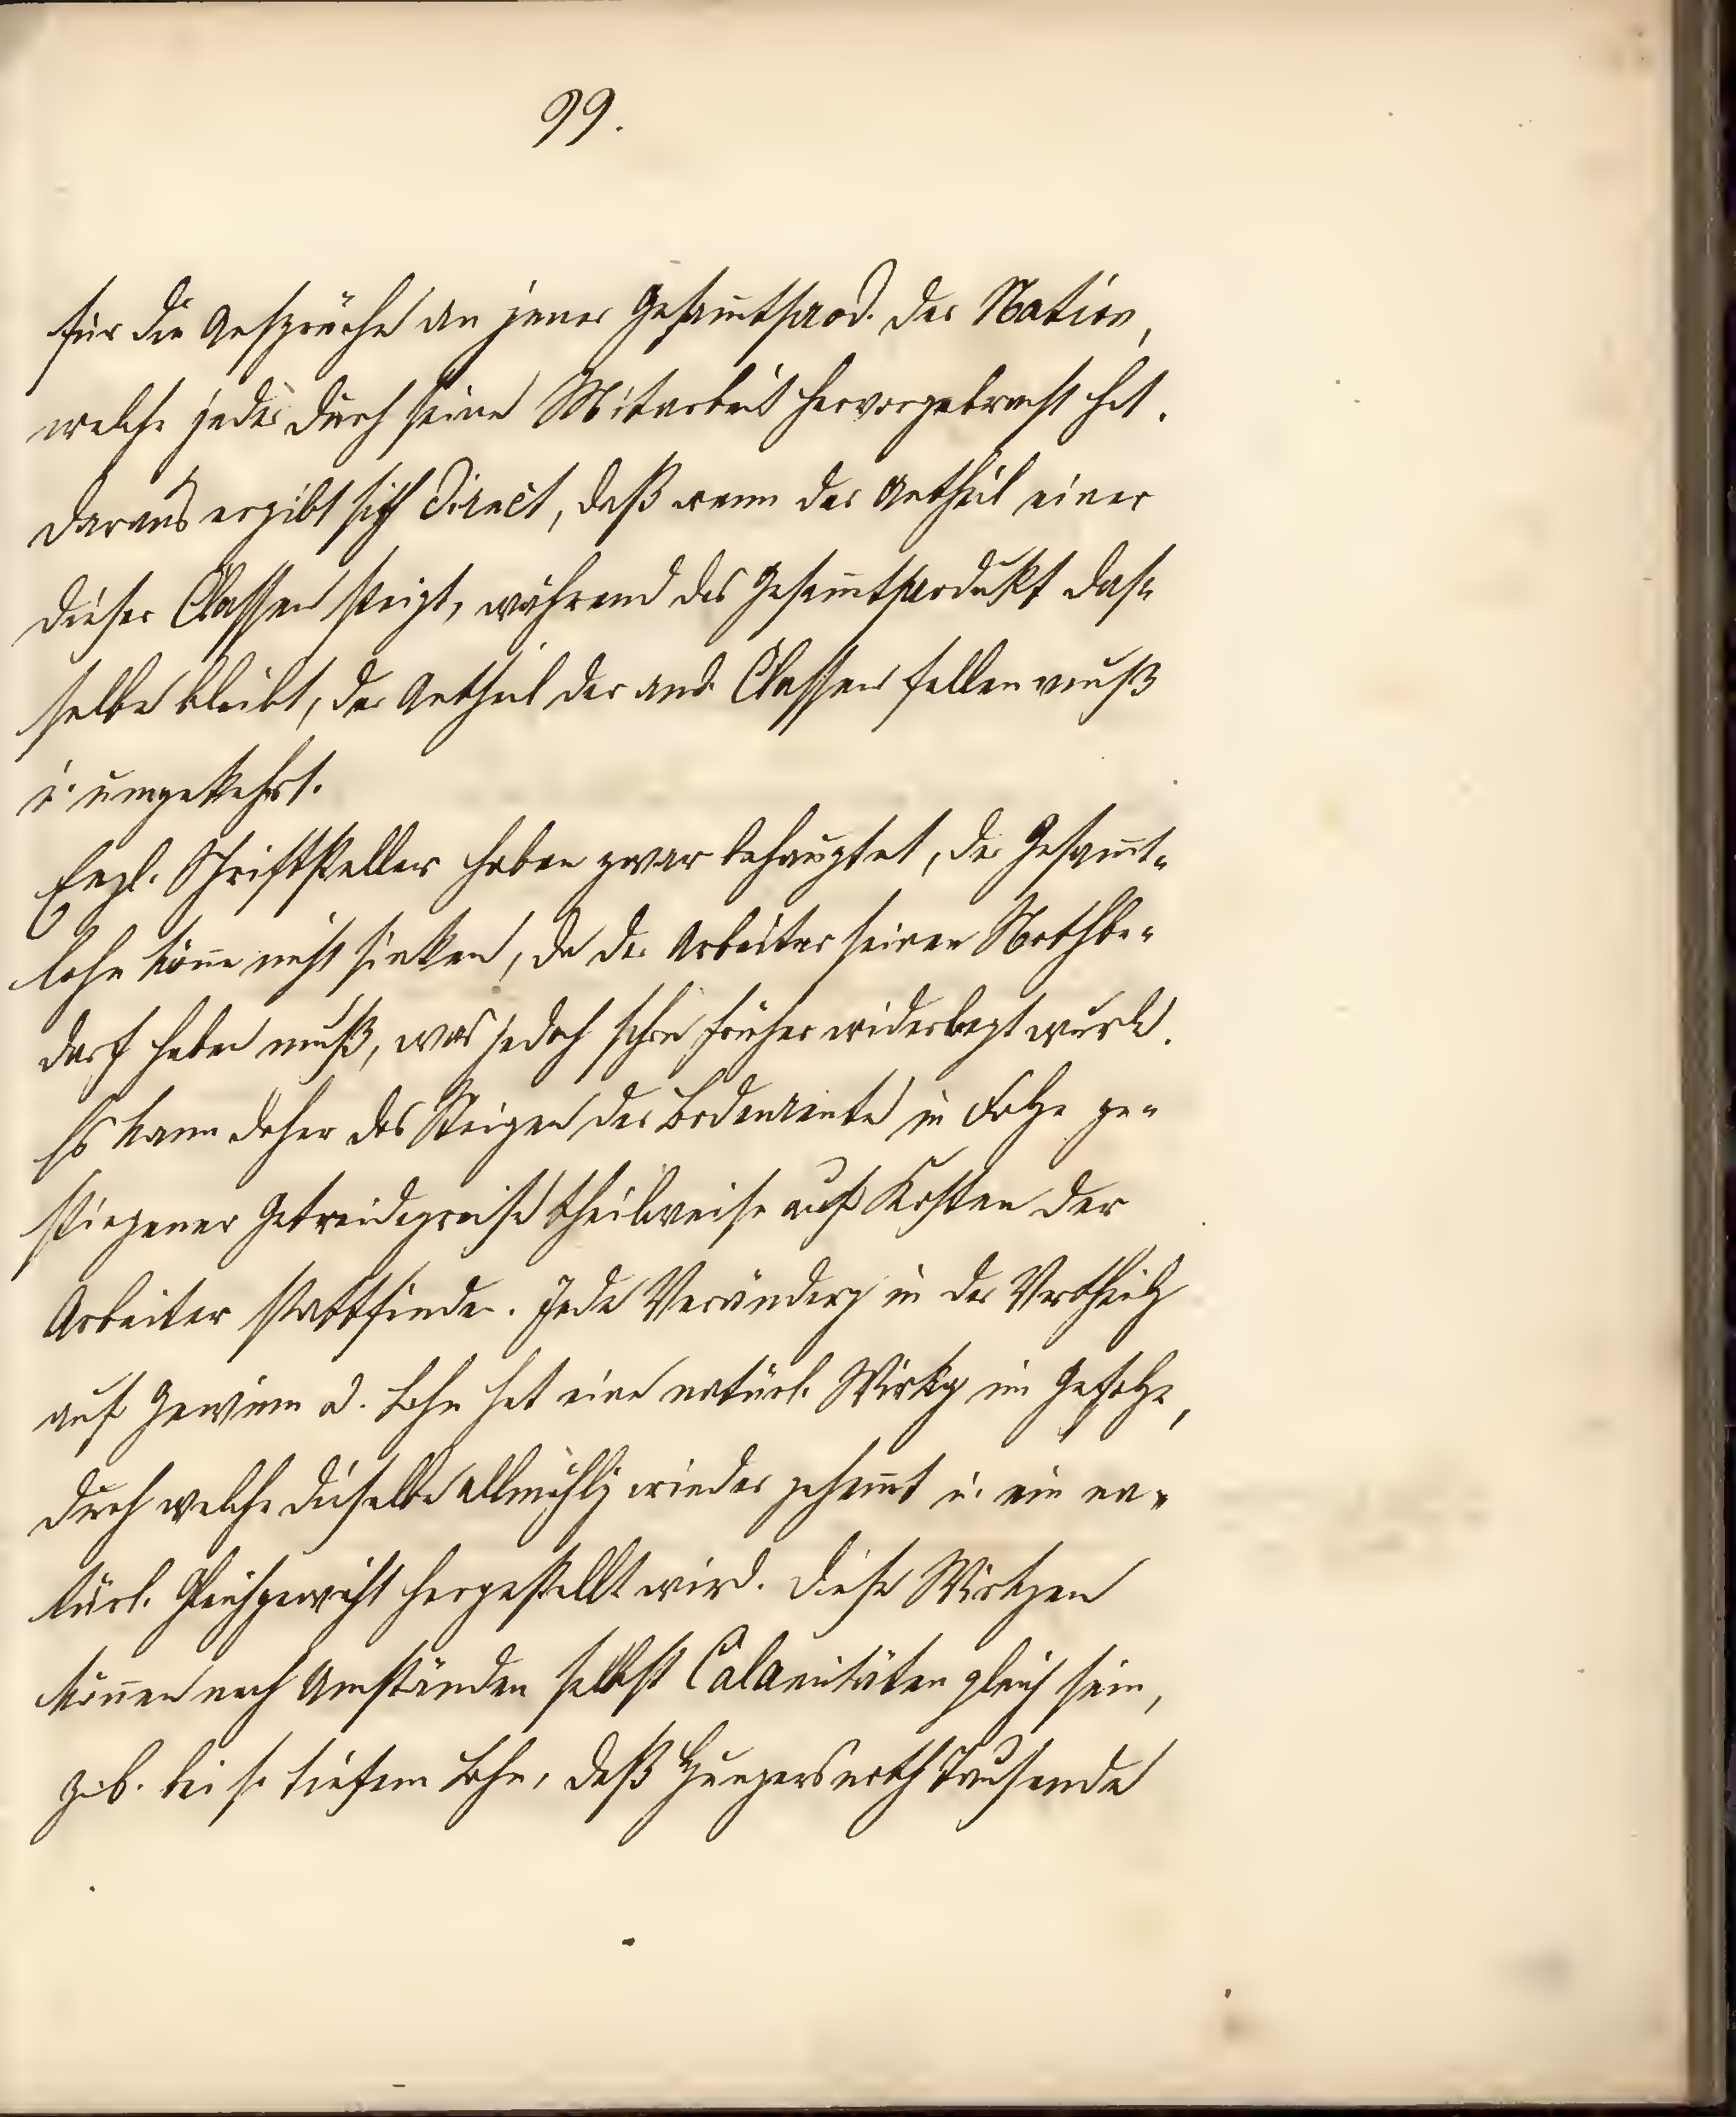 99.
für die Ansprüche an jenes Gesam̄tprod. der Nation,
welche jeder durch seine Mitarbeit hervorgebracht hat.
Daraus ergibt sich direct, daß wenn der Antheil einer
dieser Classen steigt, während das Gesam̄tprodukt das-
selbe bleibt, der Antheil der and. Classen fallen muß
u. umgekehrt.
Engl. Schriftsteller haben zwar behauptet, der Gesam̄t-
lohn kön̄e nicht sinken, da der Arbeiter seinen Nothbe-
darf haben muß, was jedoch schon früher widerlegt wurde.
Es kann daher das Steigen der Bodenrente in Folge ge-
stiegener Getreidepreise theilweise auf Kosten der
Arbeiter stattfinden. Jede Veränderg in der Vertheilg
auf Gewinn od. Lohn hat eine natürl. Wirkg im Gefolge,
durch welche dieselbe allmählig wieder gehem̄t u. ein na-
türl. Gleichgewicht hergestellt wird. Diese Wirkgen
kön̄en nach Umständen selbst Calamitäten gleich sein,
z. B. bei so tiefem Lohn, daß Hungersnoth Tausende